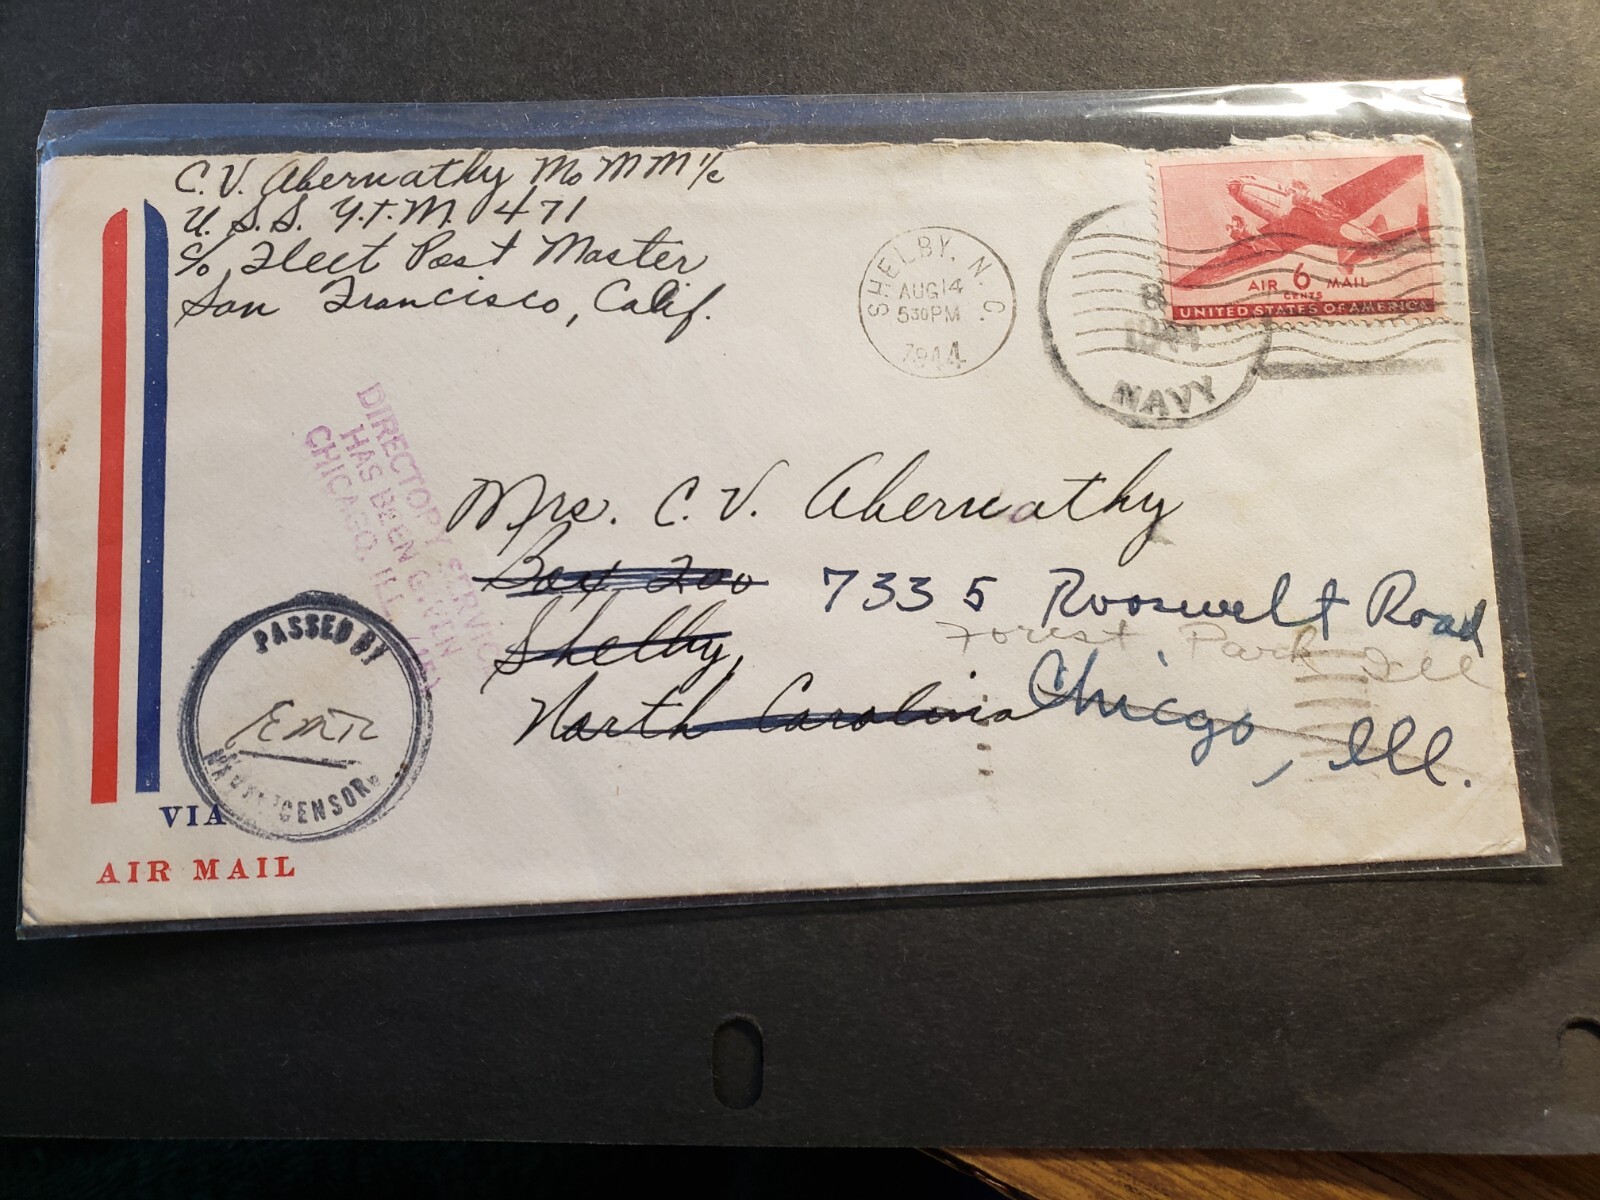 C. V. Abernathy MoMM 1/c
U. S. S. Y.T.M. 471
c/o Fleet Post Master
San Francisco, Calif.
SHELBY, N. C.
AUG 14
5 30 PM
1944
NAVY
AIR 6 MAIL
CENTS
UNITED STATES OF AMERICA
DIRECTORY SERVICE
HAS BEEN GIVEN
CHICAGO, ILL.
Mrs. C. V. Abernathy
Box 200 7335 Roosevelt Road
Forest Park Ill
Shelby,
North Carolina Chicgo, Ill.
PASSED BY
NAVAL CENSOR
VIA
AIR MAIL